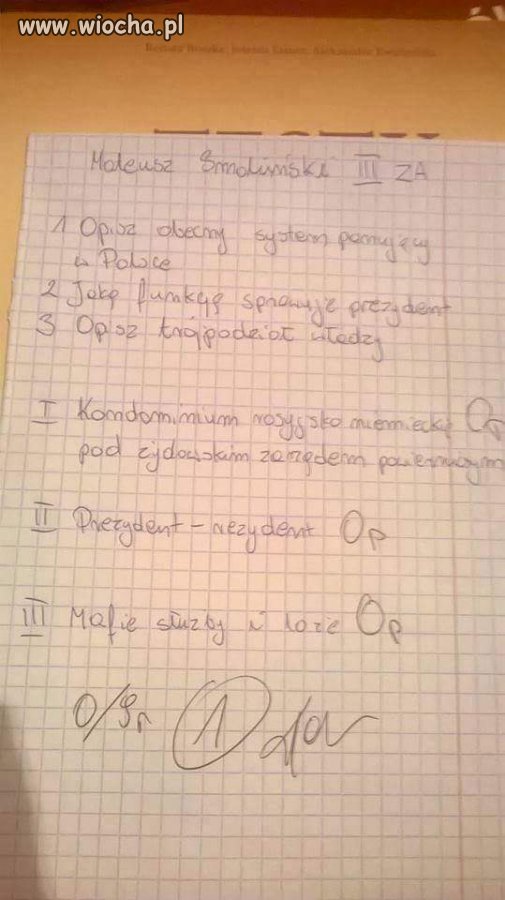 www.wiocha.pl
Mateusz Smoliński III ZA
1 Opisz obecny system panujący
w Polsce
2 Jaką funkcję sprawuje prezydent
3 Opisz trójpodział władzy
I Kondominium rosyjsko niemieckie 0p
pod żydowskim zarzędem powierniczym
II Prezydent - rezydent 0p
III Mafie służby i loże 0p
0/9p 1